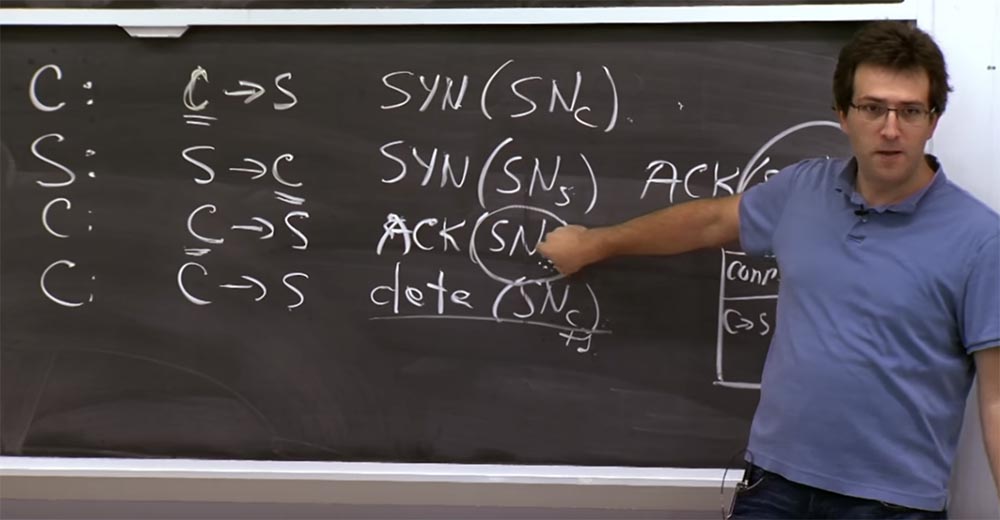 C: C→S SYN(SN_C).
S: S→C SYN(SN_S) ACK(S
C: C→S ACK(SN
C: C→S data(SN_C)
+1
Conn
C→S